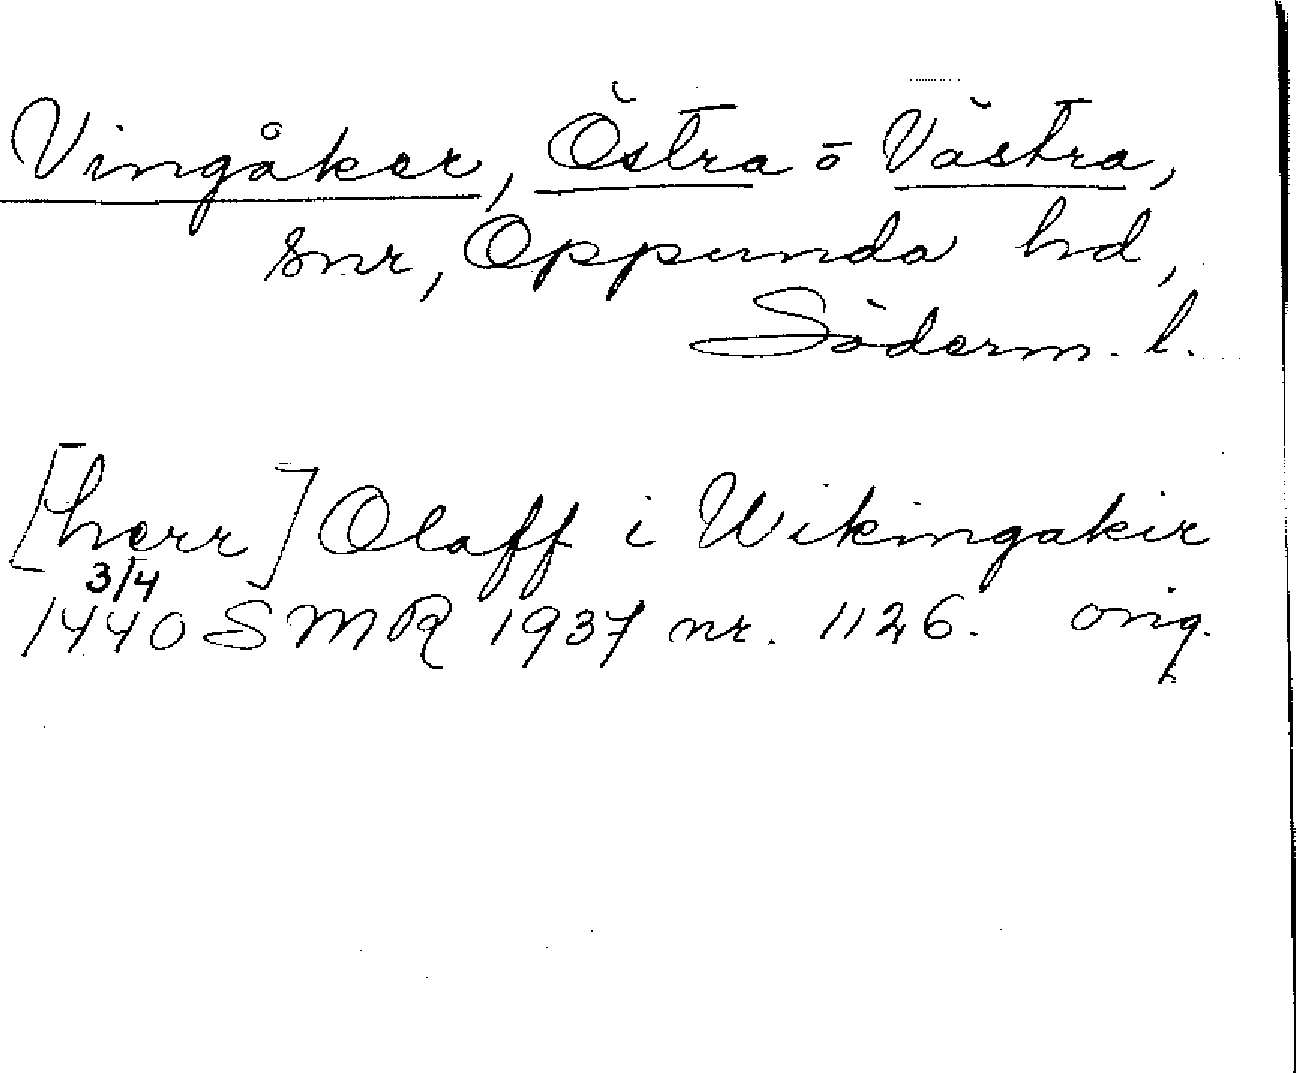 Vingåker, Östra o Västra,
snr, Oppunda hd,
Söderm. l.
[herr] Olaff i Wikingakir
3/4
1440 SMR 1937 nr. 1126. orig.